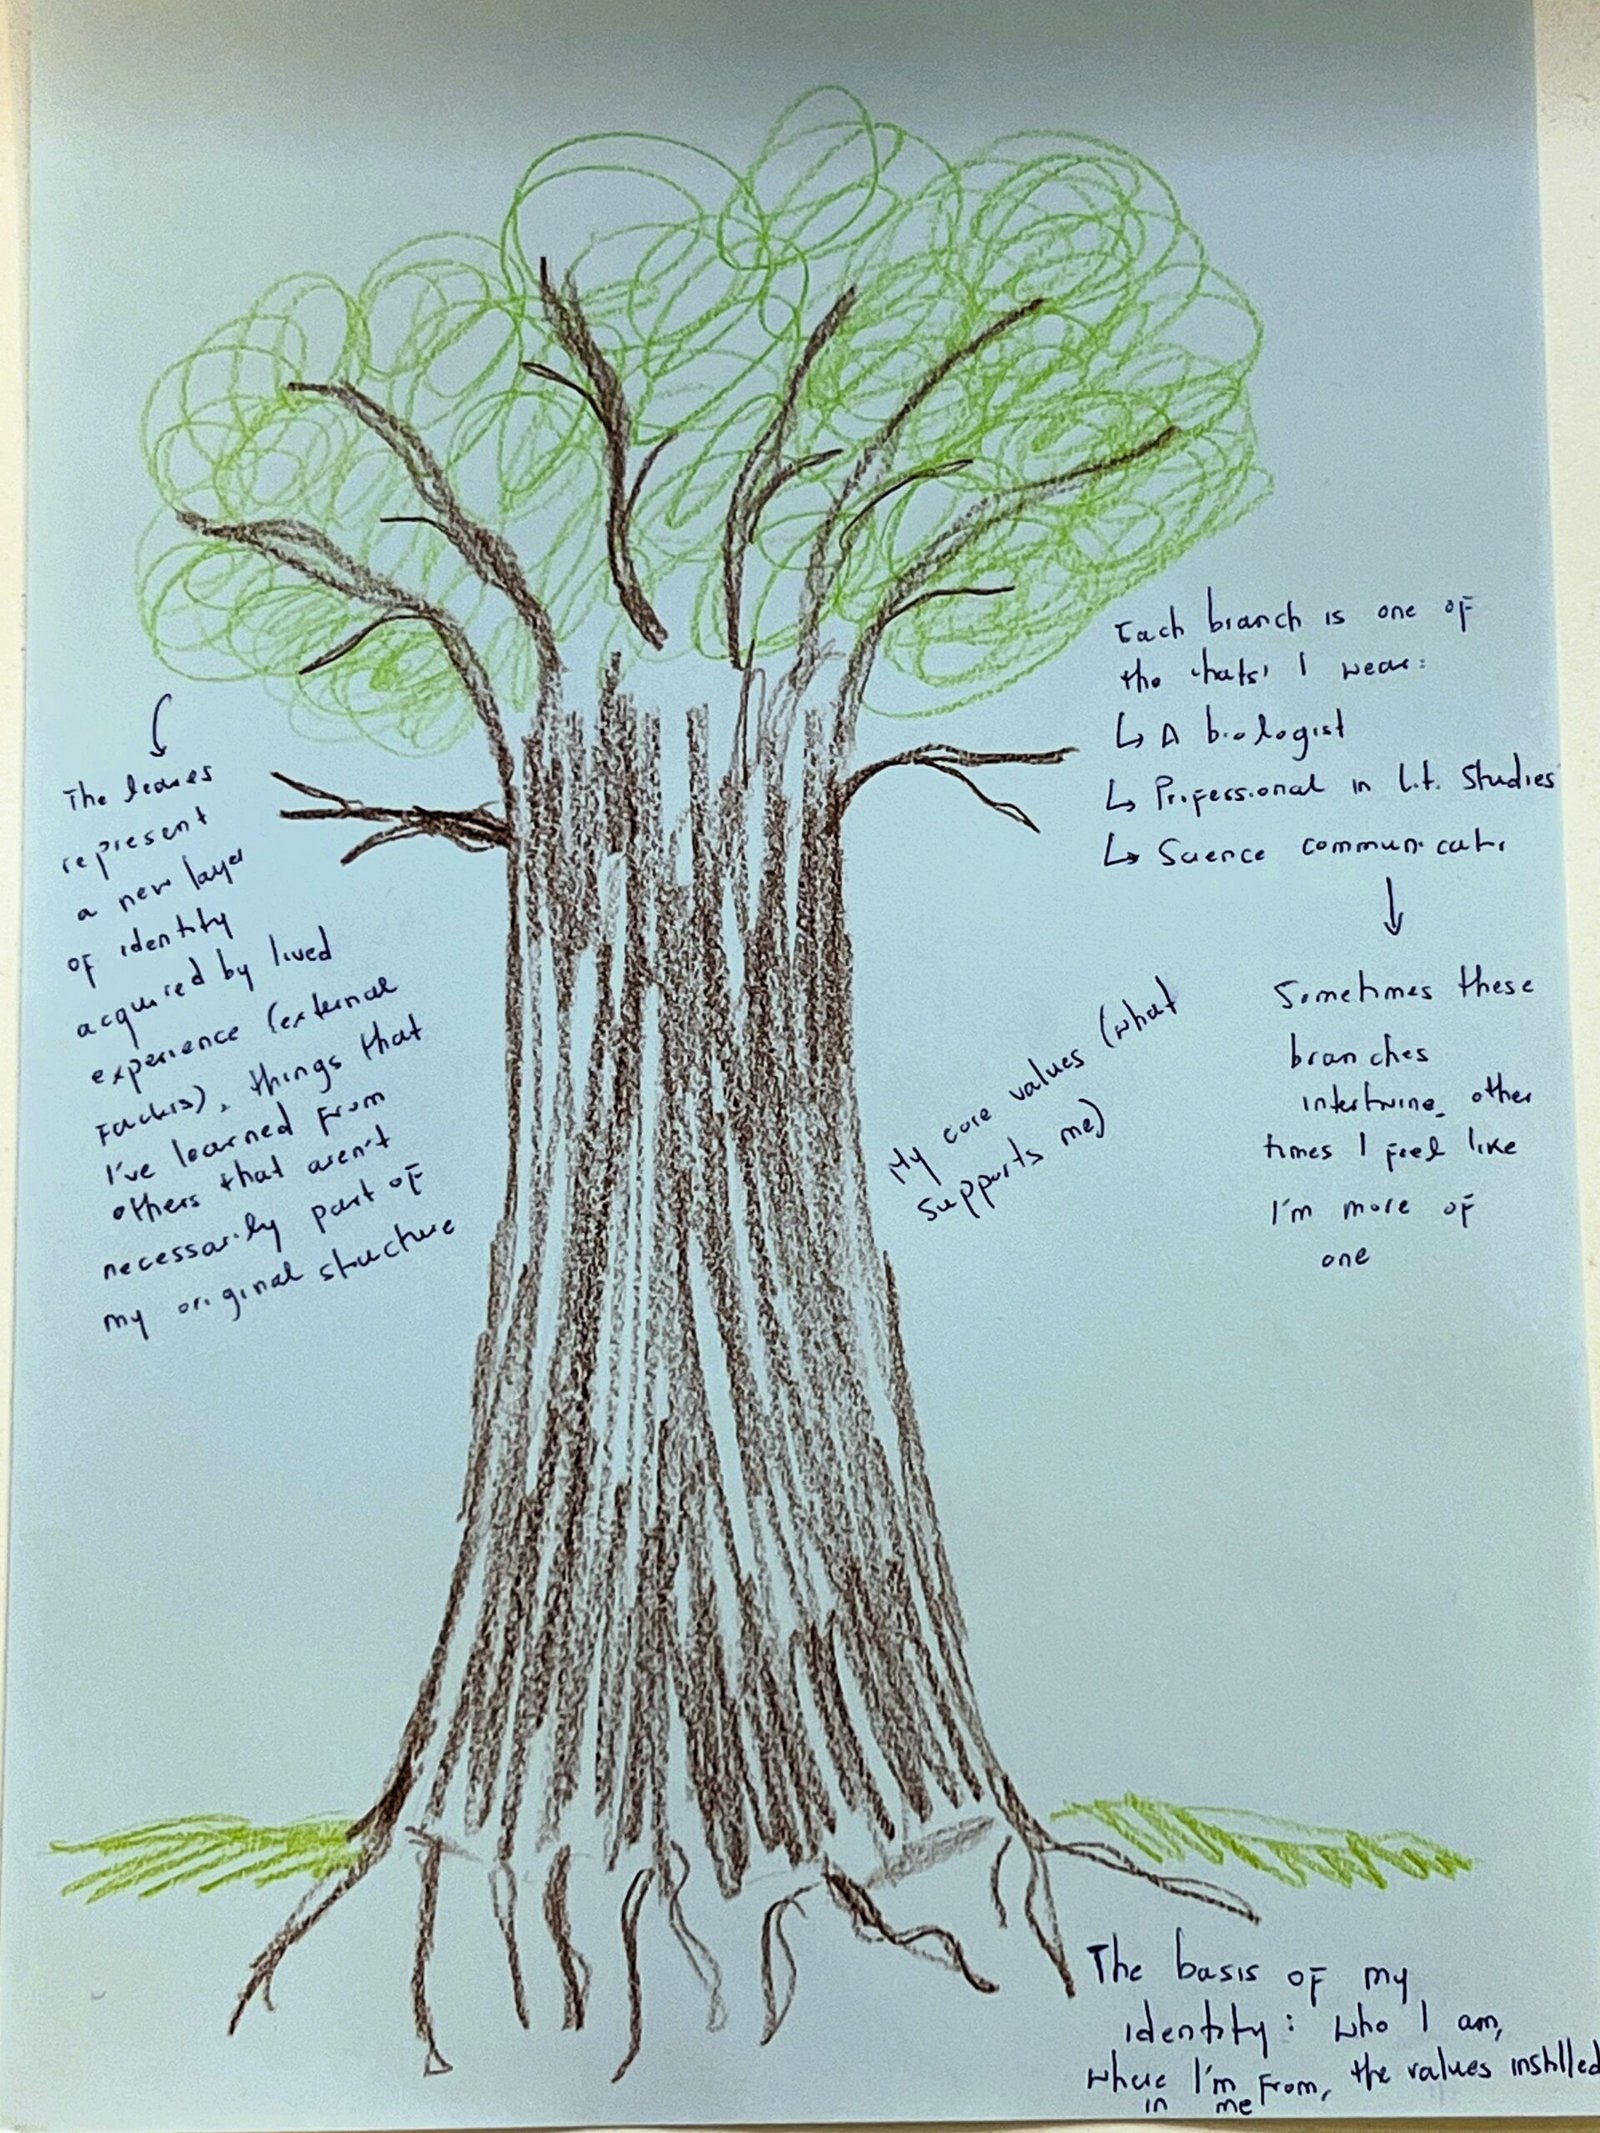 The leaves
represent
a new layer
of identity
acquired by lived
experience (external
factors), things that
I've learned from
others that aren't
necessarily part of
my original structure
Each branch is one of
the 'hats' I wear:
↳ A biologist
↳ Professional in Lit. Studies
↳ Science communicat.
Sometimes these
branches
intertwine, other
times I feel like
I'm more of
one
My core values (what
supports me)
The basis of my
identity: who I am,
where I'm from, the values instilled
in me